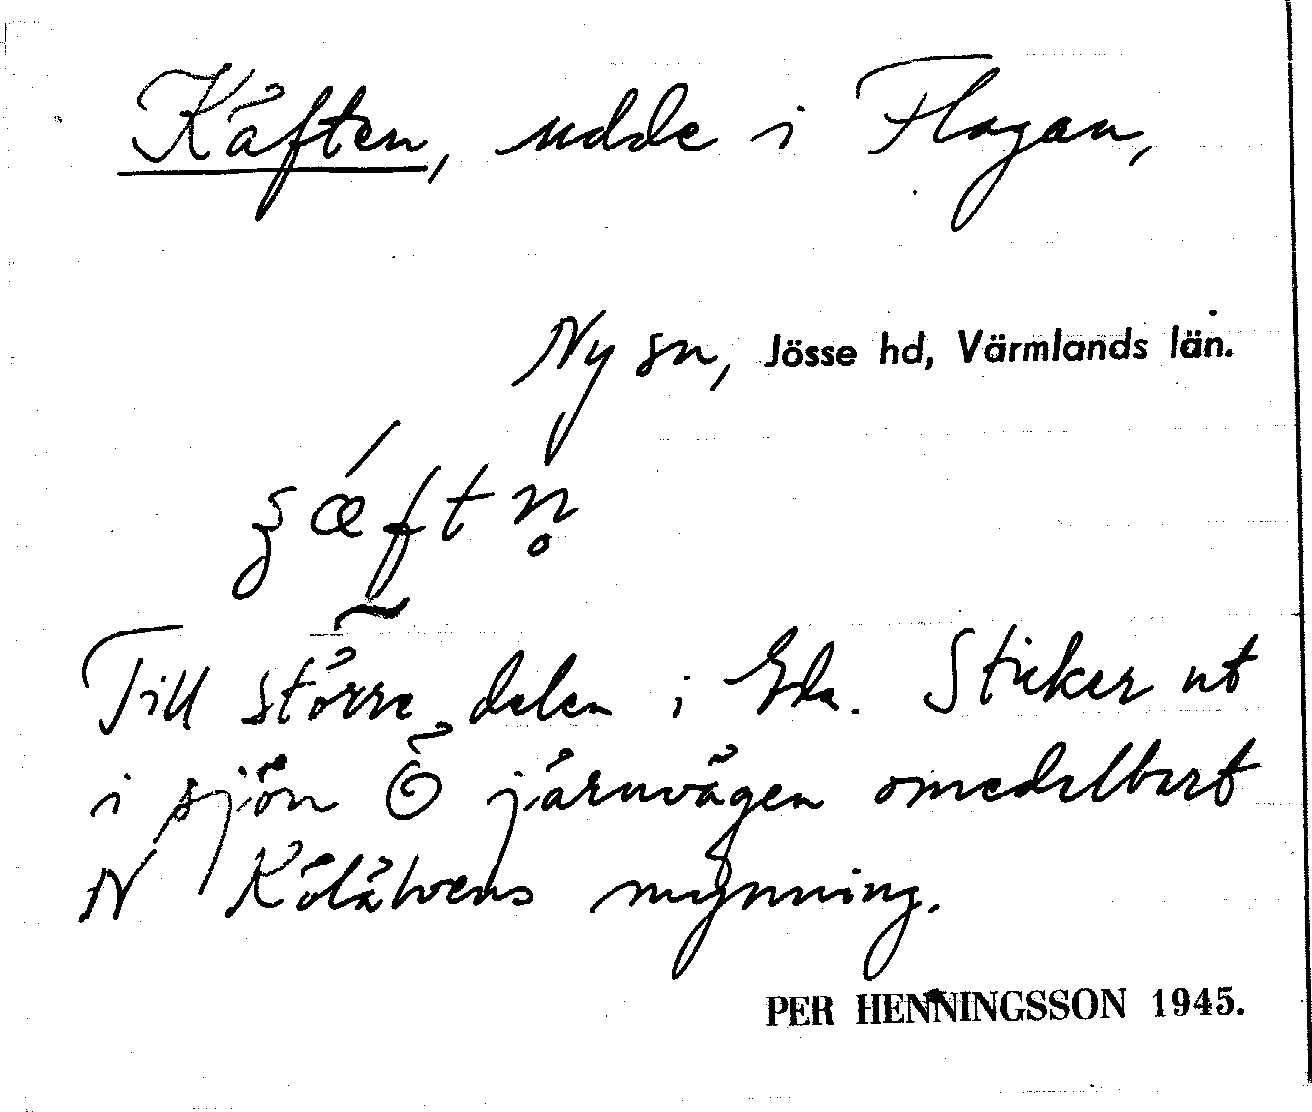 Käften, udde i Flagan,
Ny sn, Jösse hd, Värmlands län.
ʒǽftn̥
Till större delen i Eda. Sticker ut
i sjön Ö järnvägen omedelbart
N Kölälvens mynning.
PER HENNINGSSON 1945.